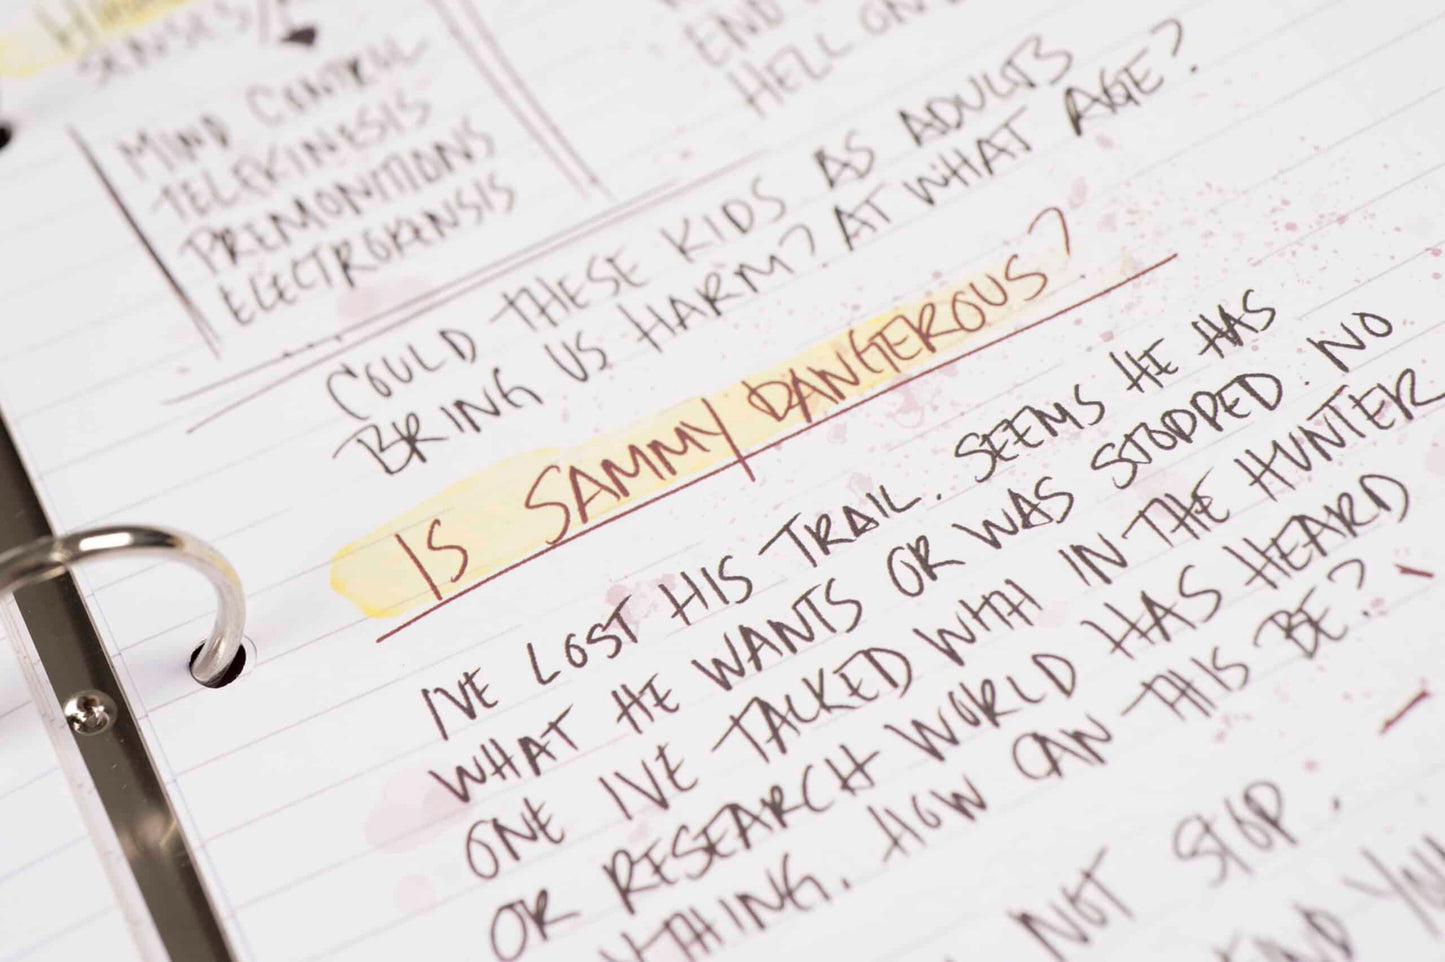 SENSES/
MIND CONTROL
TELEKINESIS
PREMONITIONS
ELECTROKENSIS
END
HELL ON
COULD THESE KIDS AS ADULTS
BRING US HARM? AT WHAT AGE?
IS SAMMY DANGEROUS?
I'VE LOST HIS TRAIL. SEEMS HE HAS
WHAT HE WANTS OR WAS STOPPED. NO
ONE IVE TALKED WITH IN THE HUNTER
OR RESEARCH WORLD HAS HEARD
THING. HOW CAN THIS BE?
NOT STOP.